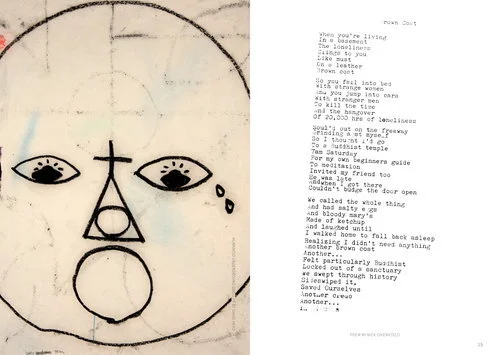 rown Coat
When you're living
In a basement
The loneliness
Clings to you
Like must
On a leather
Brown coat
So you fall into bed
With strange women
And you jump into cars
With stranger men
To kill the time
And the hangover
Of 20,000 hrs of loneliness
Soul'd out on the freeway
Grinding a st myself
So I thought I'd go
To a Buddhist temple
7am Saturday
For my own beginners guide
To meditation
Invited my friend too
He was late
Andwhen I got there
Couldn't budge the door open
We called the whole thing
And had salty e gs
And bloody mary's
Made of ketchup
And laughed until
I walked home to fall back asleep
Realizing I didn't need anything
Another brown coat
Another...
Felt particularly Buddhist
Locked out of a sanctuary
We swept through history
Sideswiped it,
Saved Ourselves
Another
Another...
15